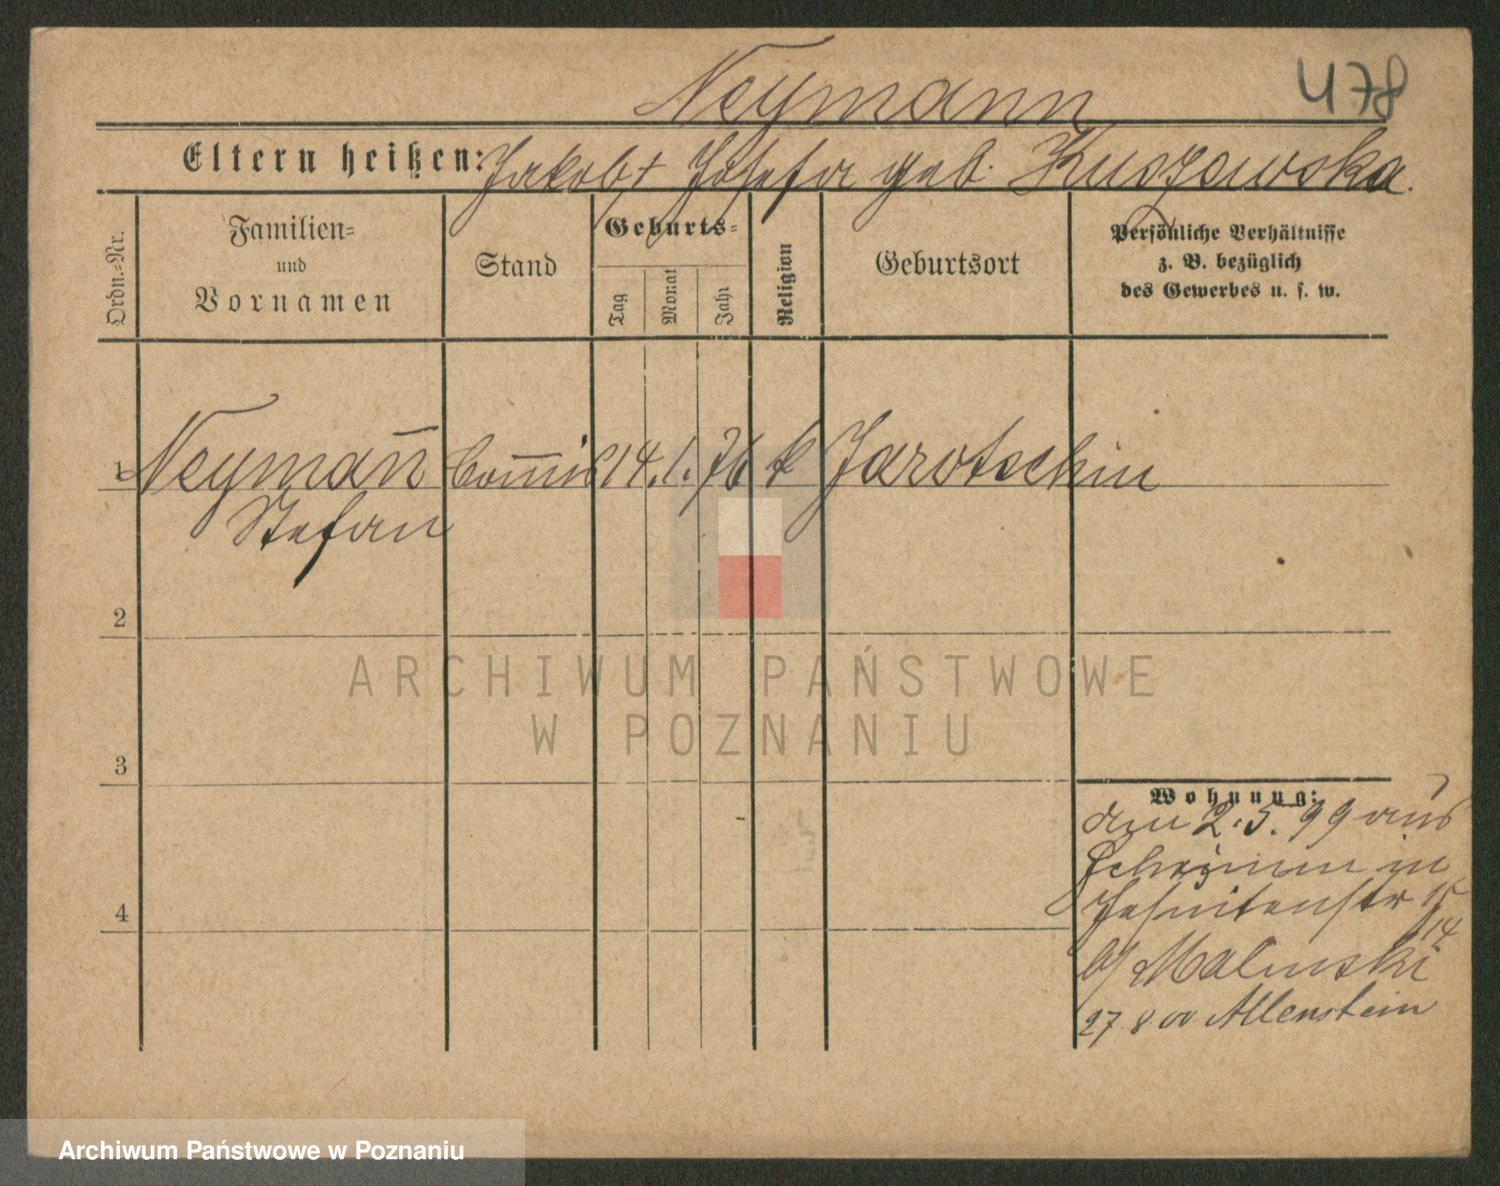 Neymann
478
Eltern heißen: Jakob + Josefa geb.
Ordn.=Nr.
Familien=
und
Vornamen
Stand
Geburts=
Tag
Monat
Jahr
Religion
Geburtsort
Persönliche Verhältnisse
z. B. bezüglich
des Gewerbes u. s. w.
1 Neyman̄ Com̄is 14. 1. 76 k Jarotschin
Stefan
2
ARCHIWUM PAŃSTWOWE
W POZNANIU
3
Wohnung:
den 2. 5. 99 aus
Schrimm in
Jesuitenstr 15
14
b/ Malinski
27 8 00 Allenstein
4
Archiwum Państwowe w Poznaniu